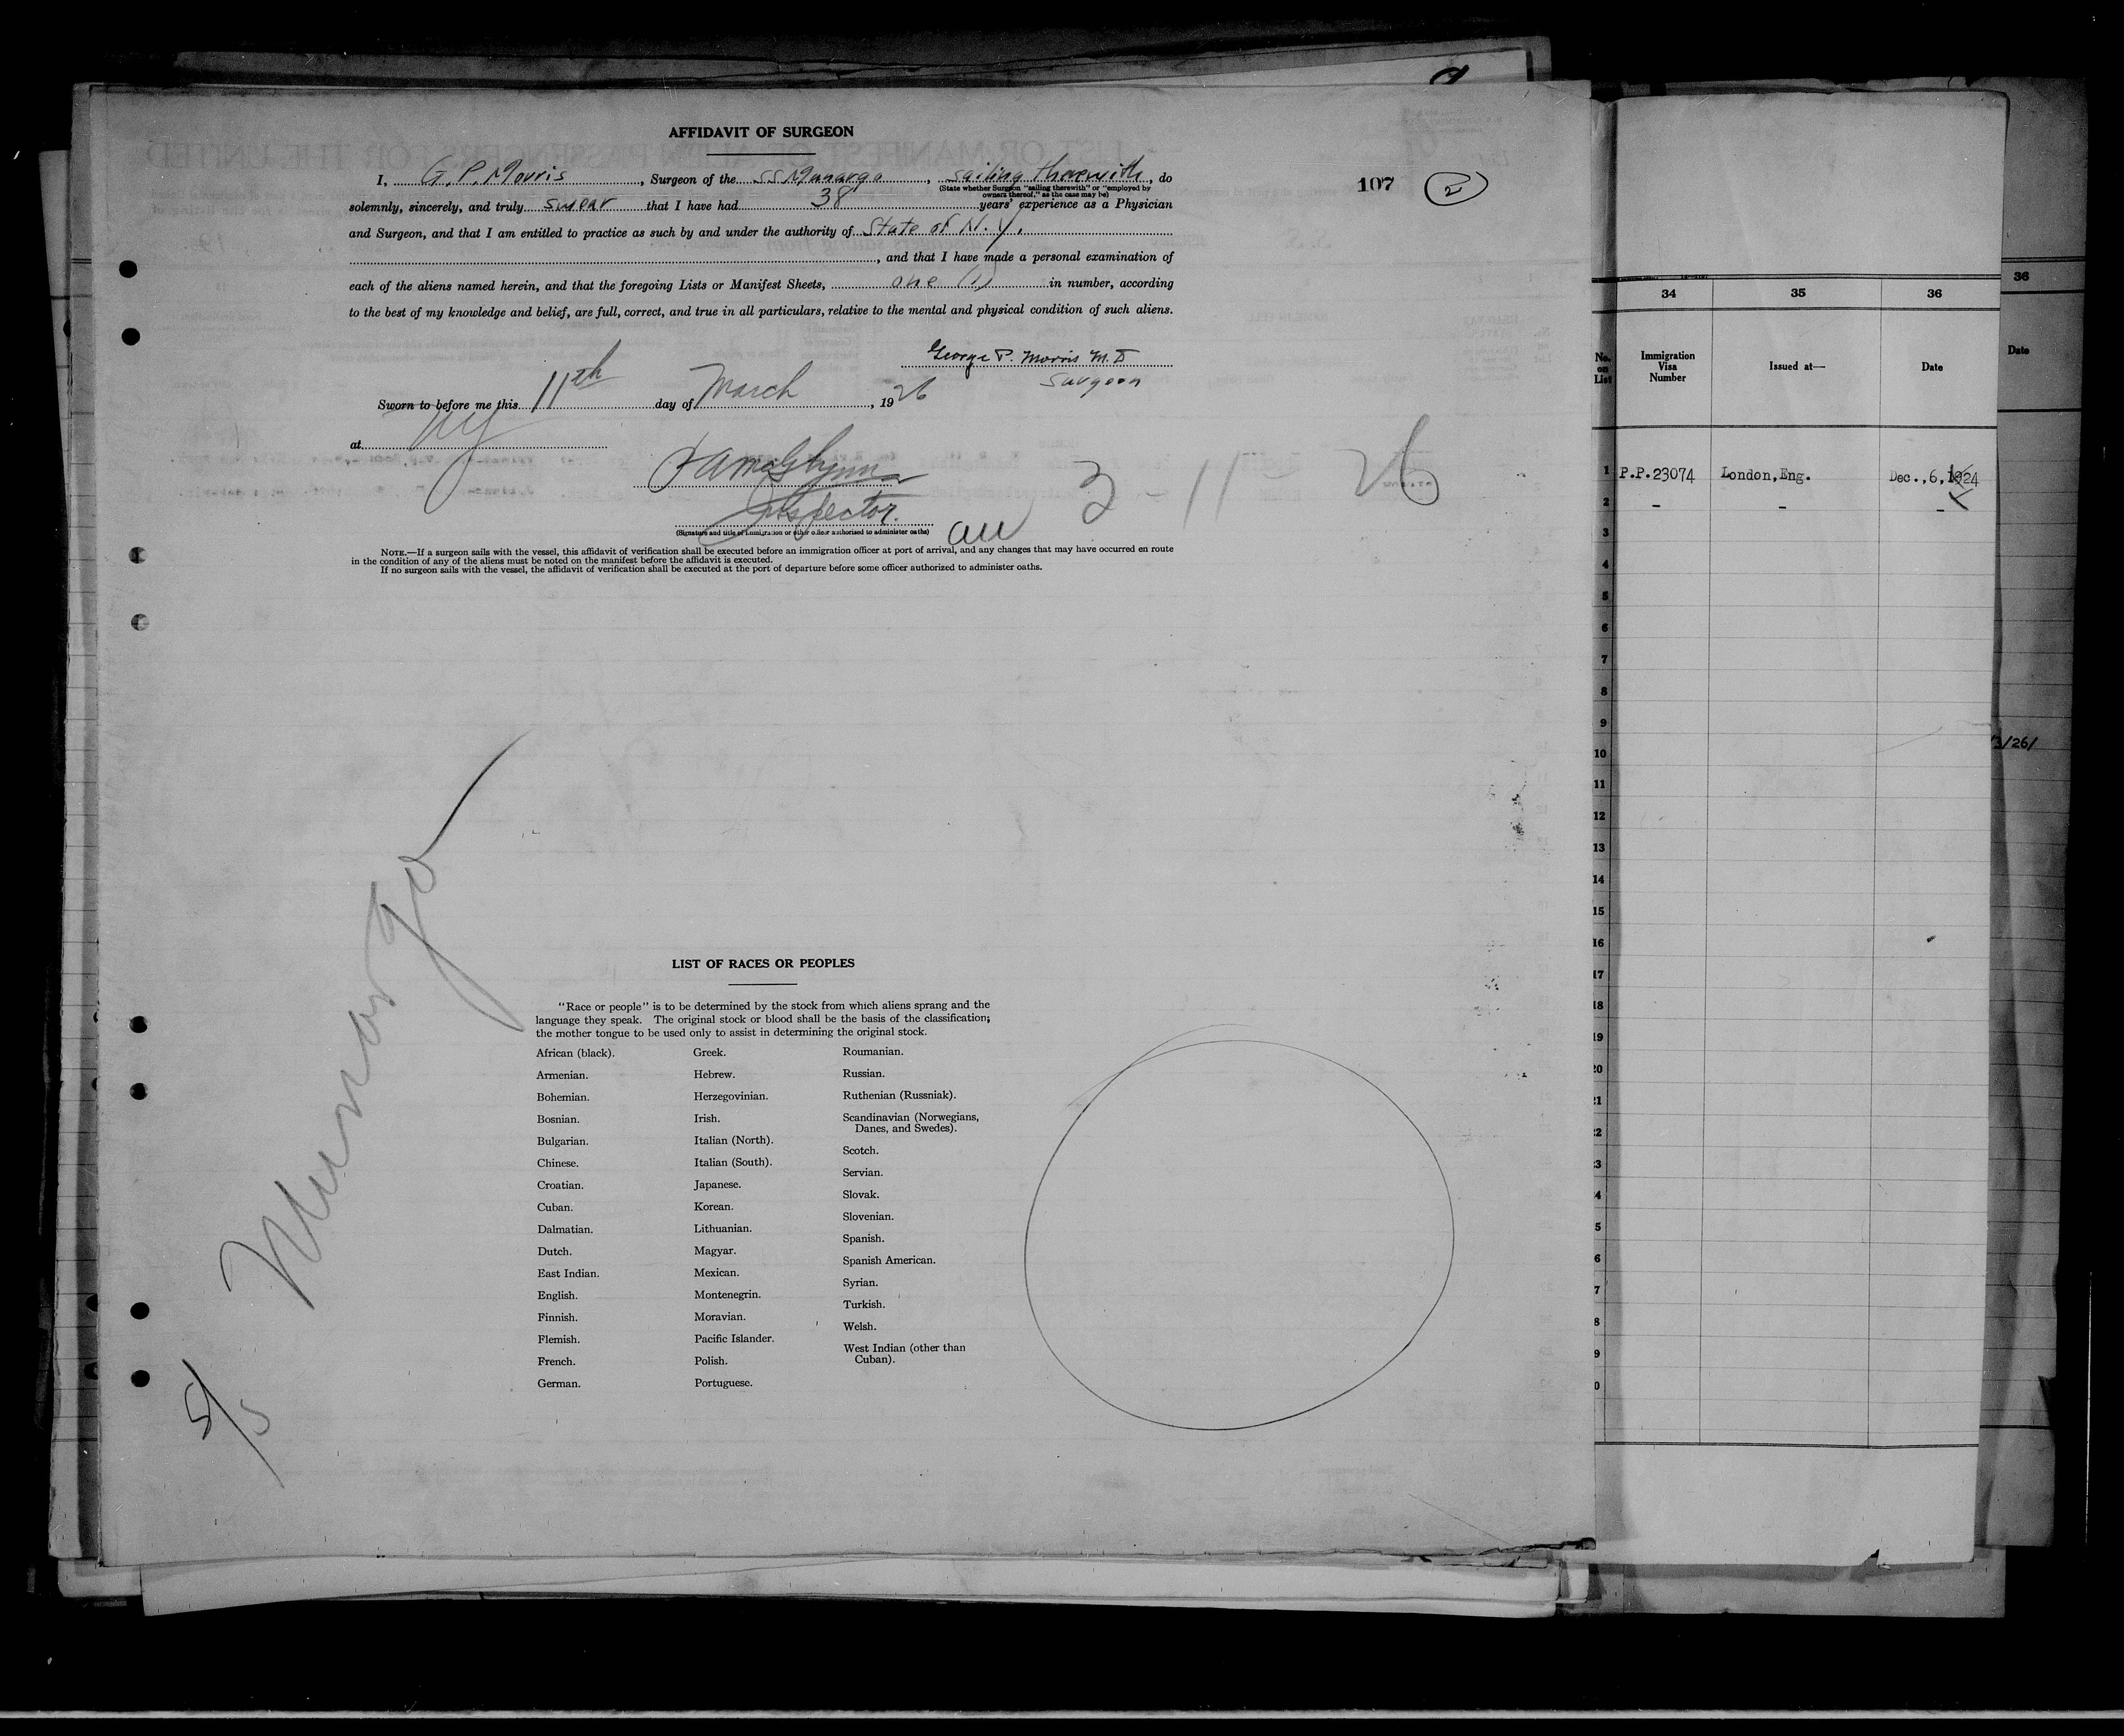 AFFIDAVIT OF SURGEON
I, G. P. Morris, Surgeon of the SS Munargo, sailing therewith, do
(State whether Surgeon "sailing therewith" or "employed by
owners thereof," as the case may be)
solemnly, sincerely, and truly swear that I have had 38 years' experience as a Physician
and Surgeon, and that I am entitled to practice as such by and under the authority of State of N.Y.
, and that I have made a personal examination of
each of the aliens named herein, and that the foregoing Lists or Manifest Sheets, one (1) in number, according
to the best of my knowledge and belief, are full, correct, and true in all particulars, relative to the mental and physical condition of such aliens.
George P. Morris M.D
Surgeon
Sworn to before me this 11th day of March, 1926
at NY
Inspector.
(Signature and title of immigration or other officer authorized to administer oaths)
3-11-26
NOTE.—If a surgeon sails with the vessel, this affidavit of verification shall be executed before an immigration officer at port of arrival, and any changes that may have occurred en route
in the condition of any of the aliens must be noted on the manifest before the affidavit is executed.
If no surgeon sails with the vessel, the affidavit of verification shall be executed at the port of departure before some officer authorized to administer oaths.
107 2
Munargo
5/5
LIST OF RACES OR PEOPLES
"Race or people" is to be determined by the stock from which aliens sprang and the
language they speak. The original stock or blood shall be the basis of the classification;
the mother tongue to be used only to assist in determining the original stock.
African (black).
Armenian.
Bohemian.
Bosnian.
Bulgarian.
Chinese.
Croatian.
Cuban.
Dalmatian.
Dutch.
East Indian.
English.
Finnish.
Flemish.
French.
German.
Greek.
Hebrew.
Herzegovinian.
Irish.
Italian (North).
Italian (South).
Japanese.
Korean.
Lithuanian.
Magyar.
Mexican.
Montenegrin.
Moravian.
Pacific Islander.
Polish.
Portuguese.
Roumanian.
Russian.
Ruthenian (Russniak).
Scandinavian (Norwegians,
Danes, and Swedes).
Scotch.
Servian.
Slovak.
Slovenian.
Spanish.
Spanish American.
Syrian.
Turkish.
Welsh.
West Indian (other than
Cuban).
34 35 36
No.
on
List
Immigration
Visa
Number
Issued at—
Date
1 P.P.23074 London,Eng. Dec.,6,1924
2 - - -
3
4
5
6
7
8
9
10
11
12
13
14
15
16
17
18
19
20
21
22
23
24
25
26
27
28
29
30
36
Date
3/26/